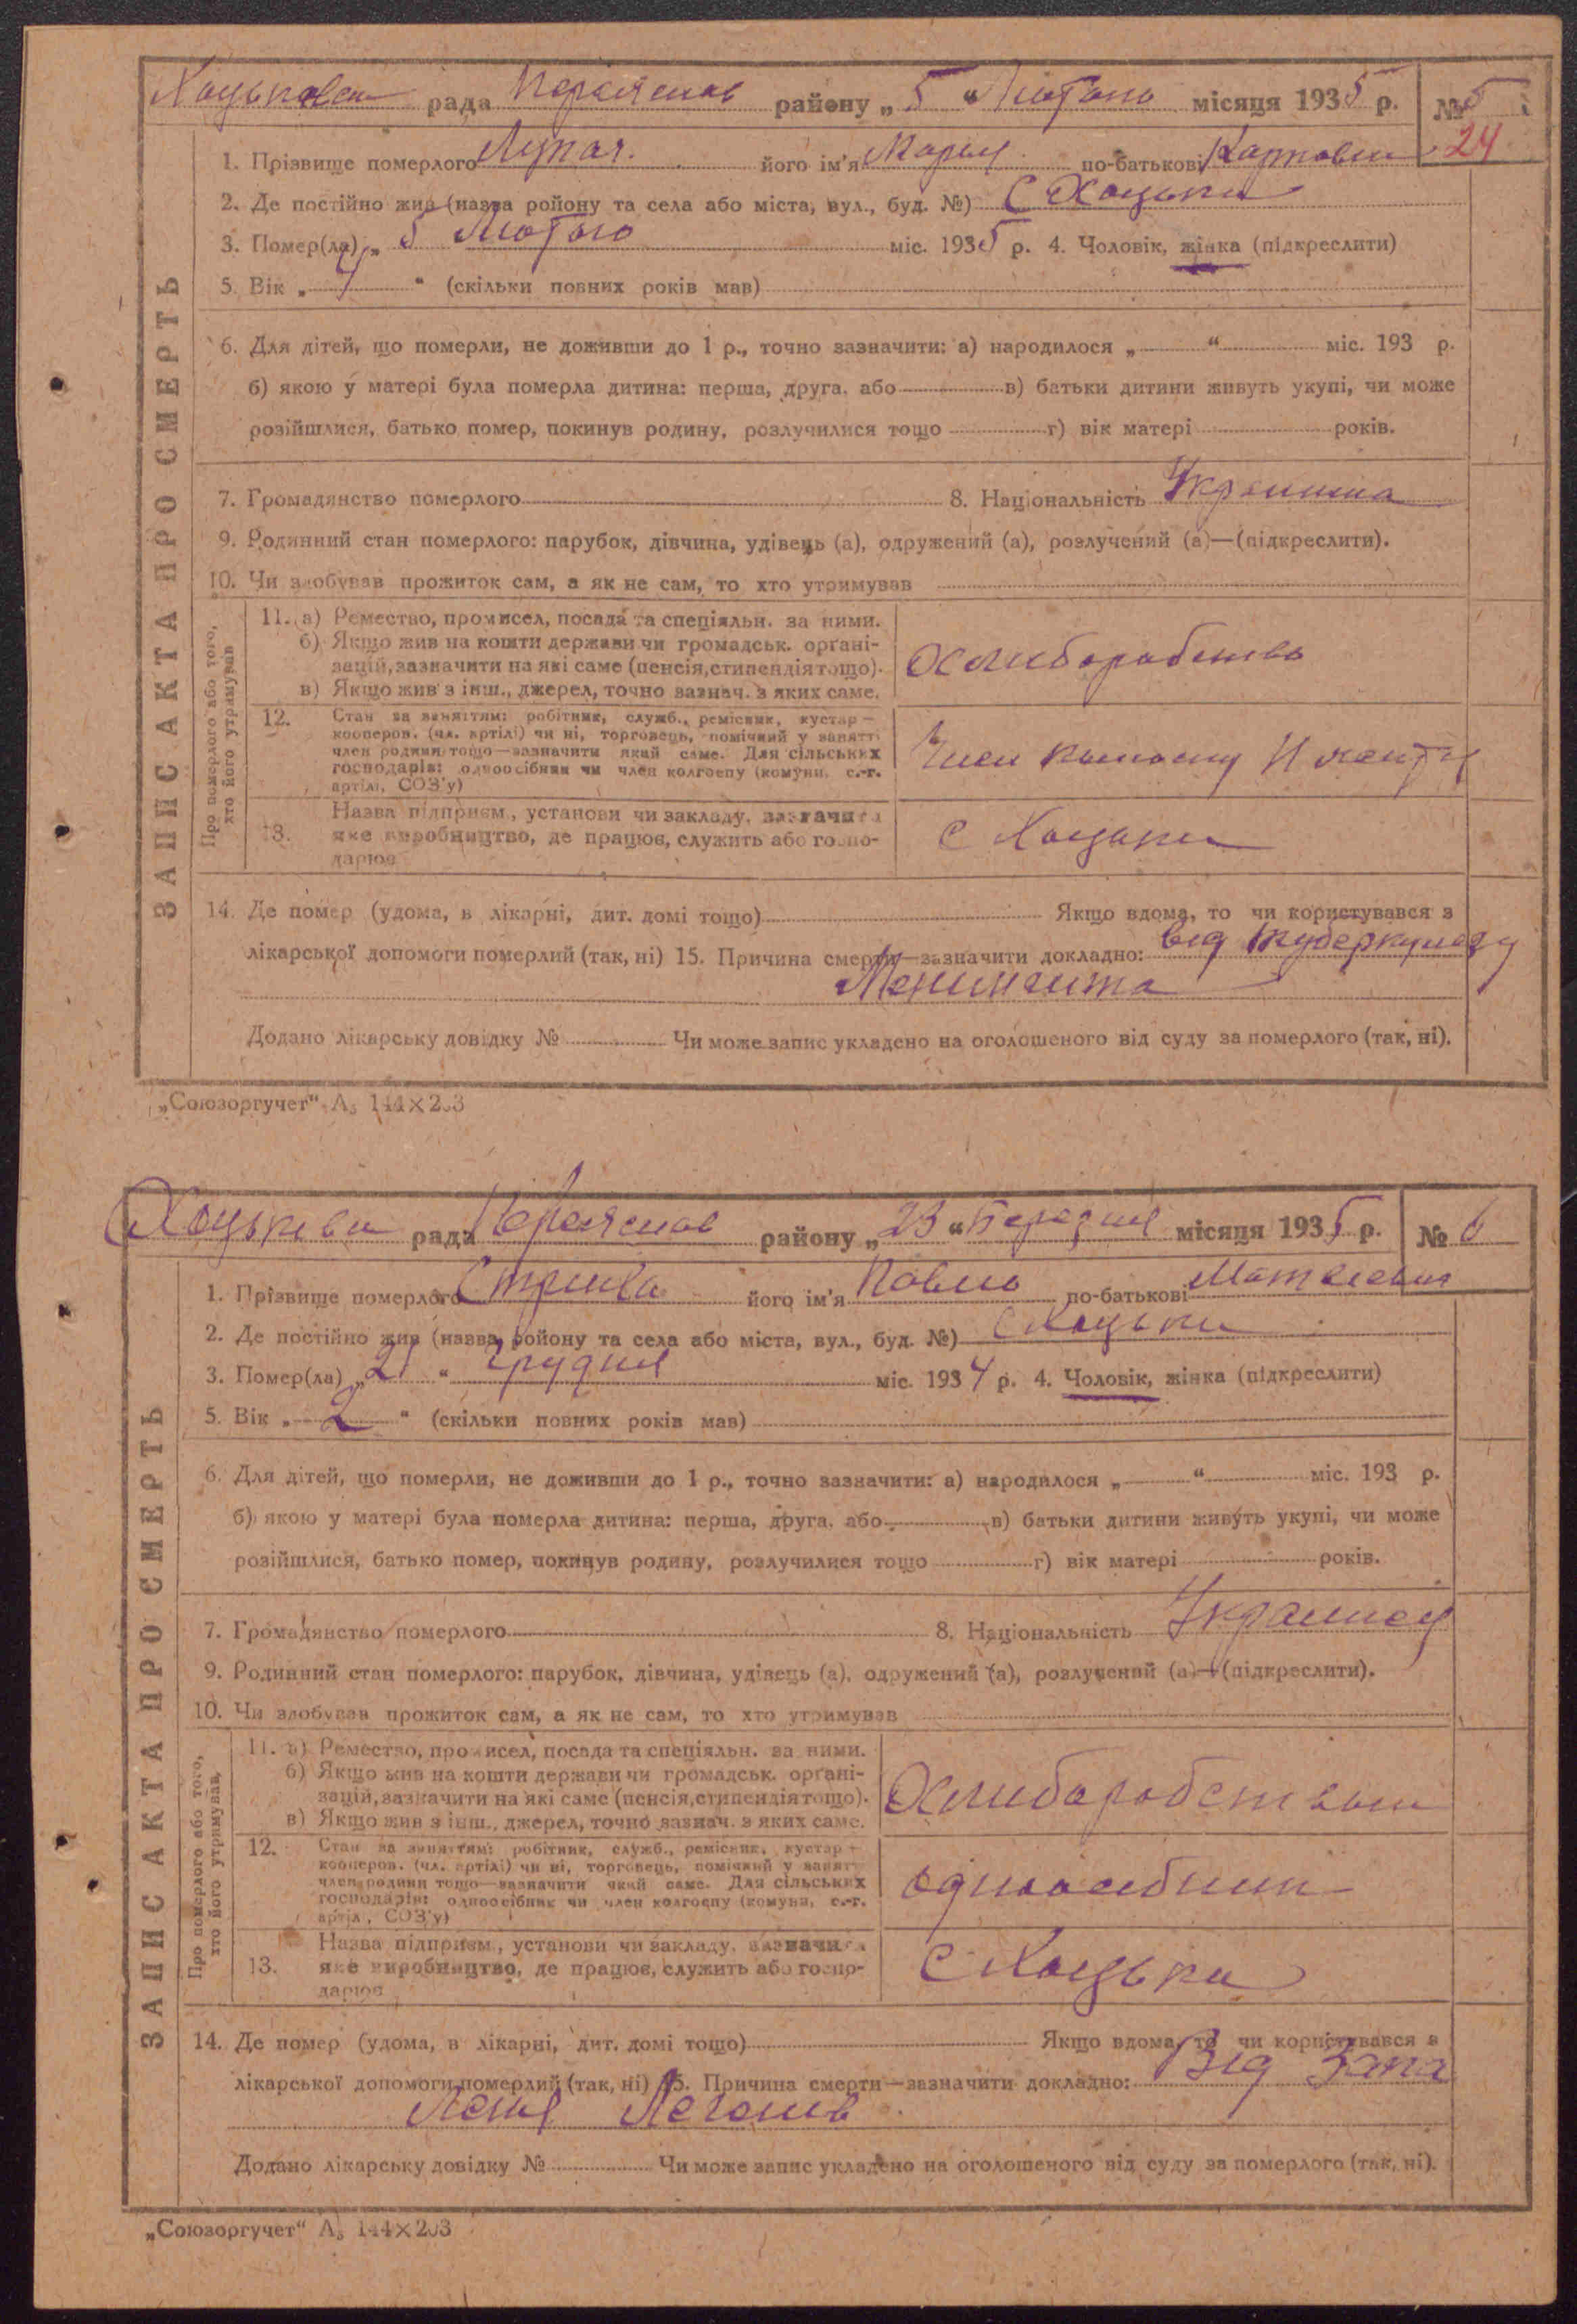 Хоцьковск рада Переяслав району „ 5 “ Лютого місяця 1935 р. № 5
24
1. Прізвище померлого Лупач. його ім'я Мария по-батькові Карповна
2. Де постійно жив (назва ройону та села або міста, вул., буд. №) С Хоцьки
3. Помер(ла) „ 5 Лютого міс. 1935 р. 4. Чоловік, жінка (підкреслити)
5. Вік „ “ (скільки повних років мав)
6. Для дітей, що померли, не доживши до 1 р., точно зазначити: а) народилося „ “ міс. 193 р.
б) якою у матері була померла дитина: перша, друга, або в) батьки дитини живуть укупі, чи може
розійшлися, батько помер, покинув родину, розлучилися тощо г) вік матері років.
7. Громадянство померлого 8. Національність Украинка
9. Родинний стан померлого: парубок, дівчина, удівець (а), одружений (а), розлучений (а)—(підкреслити).
10. Чи здобував прожиток сам, а як не сам, то хто утримував
Про померлого або того, хто його утримував
11. а) Ремество, промисел, посада та спеціяльн. за ними.
б) Якщо жив на кошти держави чи громадськ. орґані-
зацій, зазначити на які саме (пенсія, стипендія тощо).
в) Якщо жив з інш., джерел, точно зазнач. з яких саме.
Хлиборобство
12. Стан за заняттям: робітник, служб., ремісник, кустар —
кооперов. (чл. артілі) чи ні, торговець, помічний у занятті
член родини тощо—зазначити який саме. Для сільських
господарів: одноосібник чи член колгоспу (комуни, с.-г.
артілі, СОЗ'у)
Член колгоспу
13. Назва підприєм., установи чи закладу, зазначити
яке виробництво, де працює, служить або госпо-
дарює
С Хоцьки
14. Де помер (удома, в лікарні, дит. домі тощо) Якщо вдома, то чи користувався з
лікарської допомоги померлий (так, ні) 15. Причина смерти—зазначити докладно: від туберкулезу
Менингита
Додано лікарську довідку № Чи може запис укладено на оголошеного від суду за померлого (так, ні).
ЗАПИС АКТА ПРО СМЕРТЬ
„Союзоргучет“ А₅ 144×203
Хоцькивск рада Переяслав району „ 23 “ Березня місяця 1935 р. № 6
1. Прізвище померлого його ім'я Павло по-батькові
2. Де постійно жив (назва ройону та села або міста, вул., буд. №) С Хоцьки
3. Помер(ла) „ 21 “ Грудня міс. 1934 р. 4. Чоловік, жінка (підкреслити)
5. Вік „ 2 “ (скільки повних років мав)
6. Для дітей, що померли, не доживши до 1 р., точно зазначити: а) народилося „ “ міс. 193 р.
б) якою у матері була померла дитина: перша, друга, або в) батьки дитини живуть укупі, чи може
розійшлися, батько помер, покинув родину, розлучилися тощо г) вік матері років.
7. Громадянство померлого 8. Національність Украинец
9. Родинний стан померлого: парубок, дівчина, удівець (а), одружений (а), розлучений (а)—(підкреслити).
10. Чи здобував прожиток сам, а як не сам, то хто утримував
Про померлого або того, хто його утримував,
11. а) Ремество, промисел, посада та спеціяльн. за ними.
б) Якщо жив на кошти держави чи громадськ. орґані-
зацій, зазначити на які саме (пенсія, стипендія тощо).
в) Якщо жив з інш., джерел, точно зазнач. з яких саме.
Хлиборобством
12. Стан за заняттям: робітник, служб., ремісник, кустар —
кооперов. (чл. артілі) чи ні, торговець, помічний у занятті
член родини тощо—зазначити який саме. Для сільських
господарів: одноосібник чи член колгоспу (комуни, с.-г.
артілі, СОЗ'у)
одноосибник
13. Назва підприєм., установи чи закладу, зазначити
яке виробництво, де працює, служить або госпо-
дарює
С Хоцьки
14. Де помер (удома, в лікарні, дит. домі тощо) Якщо вдома, то чи користувався з
лікарської допомоги померлий (так, ні) 15. Причина смерти—зазначити докладно: Від Запа
лення Легенив
Додано лікарську довідку № Чи може запис укладено на оголошеного від суду за померлого (так, ні).
ЗАПИС АКТА ПРО СМЕРТЬ
„Союзоргучет“ А₅ 144×203